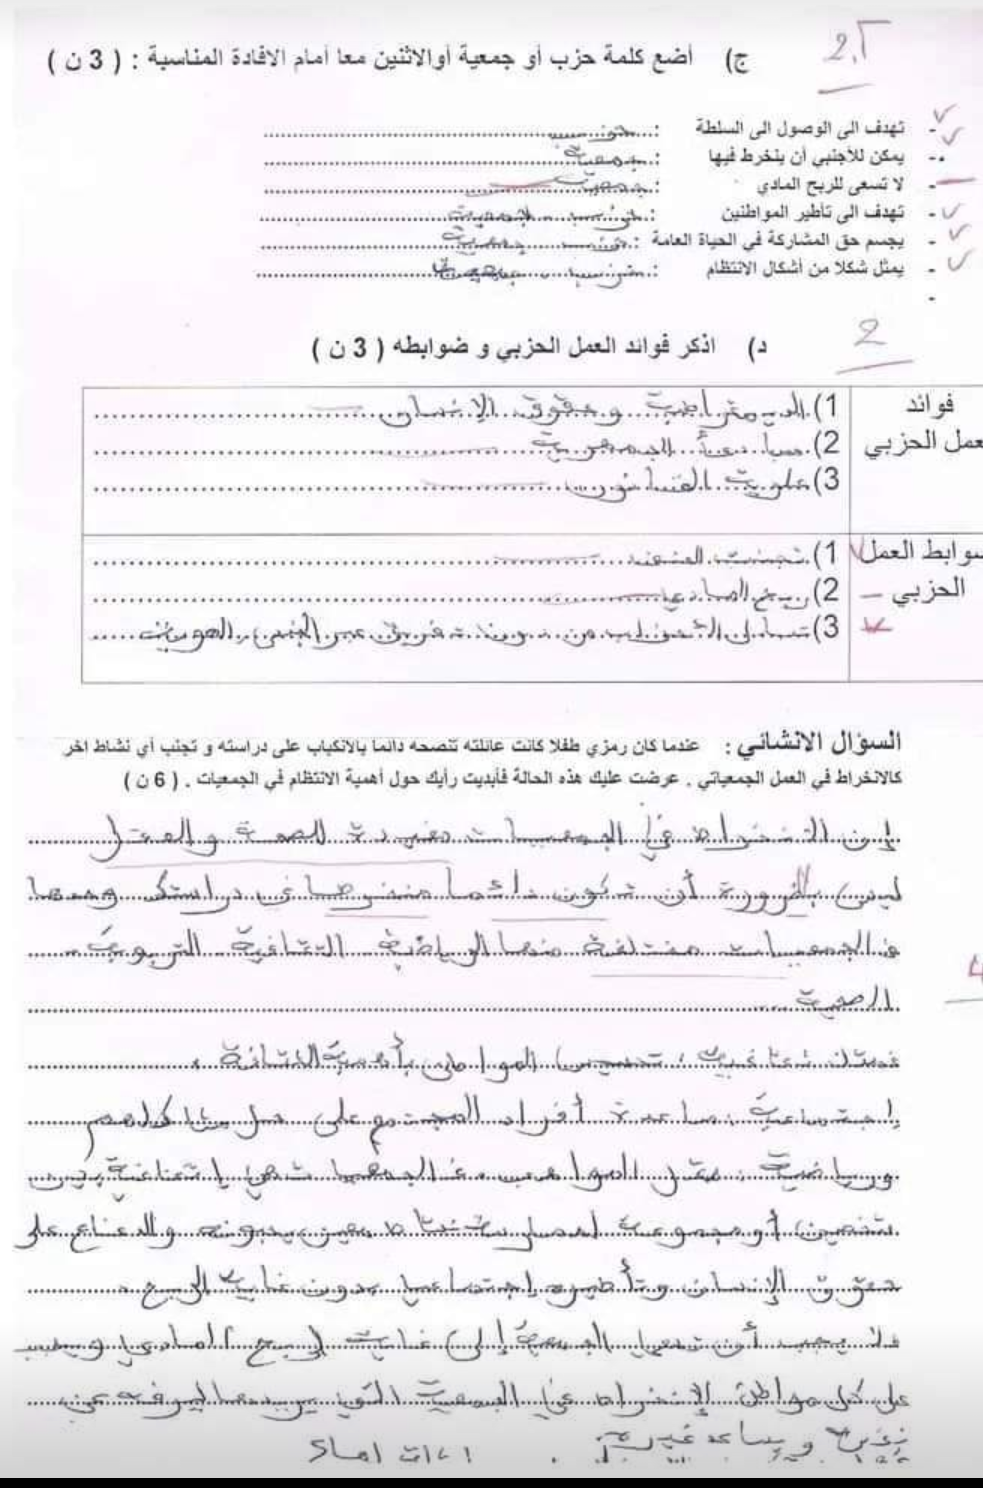 2.5
ج) أضع كلمة حزب أو جمعية أوالاثنين معا أمام الافادة المناسبة : ( 3 ن )
- تهدف الى الوصول الى السلطة : حزب
- يمكن للأجنبي أن ينخرط فيها : جمعية
- لا تسعى للربح المادي : جمعية
- تهدف الى تأطير المواطنين : حزب الجمعية
- يجسم حق المشاركة في الحياة العامة : حزب جمعية
- يمثل شكلا من أشكال الانتظام : حزب ، جمعية
-
2
د) اذكر فوائد العمل الحزبي و ضوابطه ( 3 ن )
فوائد
عمل الحزبي
1) الديمقراضية وحقوق الإنسان
2) مبادئ الجمهورية
3) علوية القانون
وابط العمل
الحزبي
1) تجنب العنف
2) ربح المادي
3) تساوي الأحزاب من دون تفريق عبر الجنس، الهوية
السؤال الانشائي : عندما كان رمزي طفلا كانت عائلته تنصحه دائما بالانكباب على دراسته و تجنب أي نشاط اخر
كالانخراط في العمل الجمعياتي . عرضت عليك هذه الحالة فأبديت رأيك حول أهمية الانتظام في الجمعيات . ( 6 ن )
إن التنخراط في الجمعيات مفيدة للصحة والعقل
ليس بالضرورة أن تكون دائما منخرطا في دراستك
فالجمعيات مختلفة منها الرياضية الثقافية التربوية
4
الصحية
تحسيس المواطن بأهمية الثقافة
إجتماعية : مساعدة أفراد المجتمع على حل مشاكلهم
ورياضية : صقل المواهب فالجمعيات هي إتفاقية بين
شخصين أو مجموعة بنشاط معين يحبونه والدفاع على
حقوق الإنسان وتأطيره إجتماعيا بدون غاية الربح
فلا يجب أن تعمل الجمعية إلى غاية الربح المادي ويجب
على كل مواطن الإنخراط في الجمعية التي يريدها ليرفه عن
نفسه ويساعد غيره